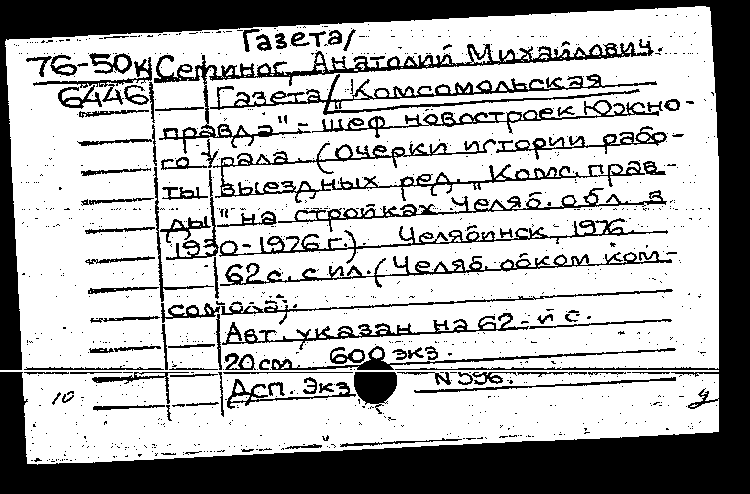 Газета/
76-50к Семиног, Анатолий Михайлович.
6446 Газета/ „Комсомольская
правда" - шеф новостроек Южно-
го Урала. (Очерки истории рабо-
ты выездных ред. „Комс. прав-
ды" на стройках Челяб. обл. в
1930-1976 г.). Челябинск, 1976.
62 с. с ил. (Челяб. обком ком-
сомола).
Авт. указан на 62-й с.
20 см. 600 экз.
Дсп. Экз N 596.
10 у